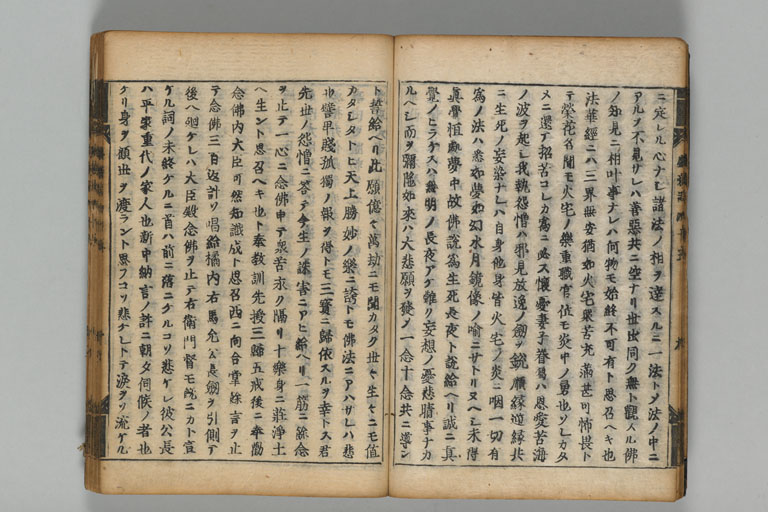 ニ定レル心ナレ諸法ノ相ヲ達スルニ一法トメ法ノ中ニ
アルヲ不見サレハ善惡共ニ空ナリ世出同ク無ト觀スル佛
ノ知見ニ相叶事ナレハ何物モ始終不可有ト思召ヘキ也
法華經ニハ三界無安猶如火宅衆苦充滿甚可怖畏ト
テ榮花ノ聞モ火宅ノ樂重職官位モ炎中ノ勇也ツレカタ
メニ還テ招苦コレカ爲ニ必ス懷憂妻子眷屬ハ恩愛苦海
ノ波ヲ起シ我執怨憎ハ邪見放逸ノ劔ヲ銳順縁逆縁共
ニ生死ノ妄染ナレハ自身他身皆火宅ノ炎ニ咽一切有
爲ノ法ハ悉如夢如幻水月鏡像ノ喻ニサトリヌヘシ未得
眞覺恒處夢中故佛說爲生死長夜ト說給ヘリ誠ニ眞
覺ノヒラケスハ無明ノ長夜アケ難ク妄想ノ憂悲晴事ナカ
ルヘシ而ヲ彌陀如來ハ大悲願ヲ發メ一念十念共ニ導ン
ト誓給ヘリ此願億々萬劫ニモ聞カタク世々生々ニモ値
カタシタトヒ天上勝妙ノ樂ニ誇トモ佛法ニアハサレハ悲
也譬卑賤孤獨ノ報ヲ得トモ三寶ニ歸依スルヲ幸トス君
先世ノ怨憎ニ答テ今生ノ誅害ニアヒ給ヘリ一筋ニ餘念
ヲ止テ一心ニ念佛申テ衆苦永ク隔リ十樂身ニ莊淨土
ヘ生ント思召ヘキ也ト奉敎訓先授三歸五戒後ニ奉勸
念佛內大臣可然知識成ト思召西ニ向合掌餘言ヲ止
テ念佛三百返計ソ唱給橘內右馬允公長劔ヲ引側テ
後ヘ廻ケレハ大臣殿念佛ヲ止テ右衛門督モ既ニカト宣
ケル詞ノ未終ケルニ首ハ前ニ落ニケルコソ悲ケレ彼公長
ハ平家重代ノ家人也新中納言ノ許ニ朝夕伺候ノ者也
ケリ身ヲ顧世ヲ渡ラント思フコソ悲ケレトテ淚ヲソ流ケル